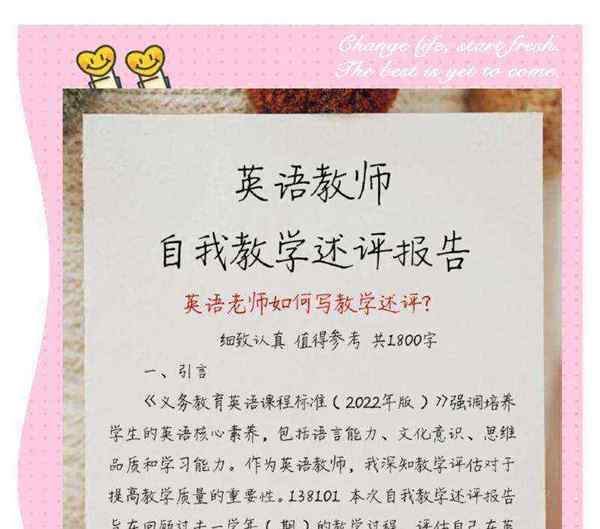 Change life, start fresh.
The best is yet to come.
英语教师
自我教学述评报告
英语老师如何写教学述评?
细致认真 值得参考 共1800字
一、引言
《义务教育英语课程标准（2022年版）》强调培养
学生的英语核心素养，包括语言能力、文化意识、思维
品质和学习能力。作为英语教师，我深知教学评估对于
提高教学质量的重要性。138101 本次自我教学述评报告
旨在回顾过去一学年（期）的教学过程，评估自己在英